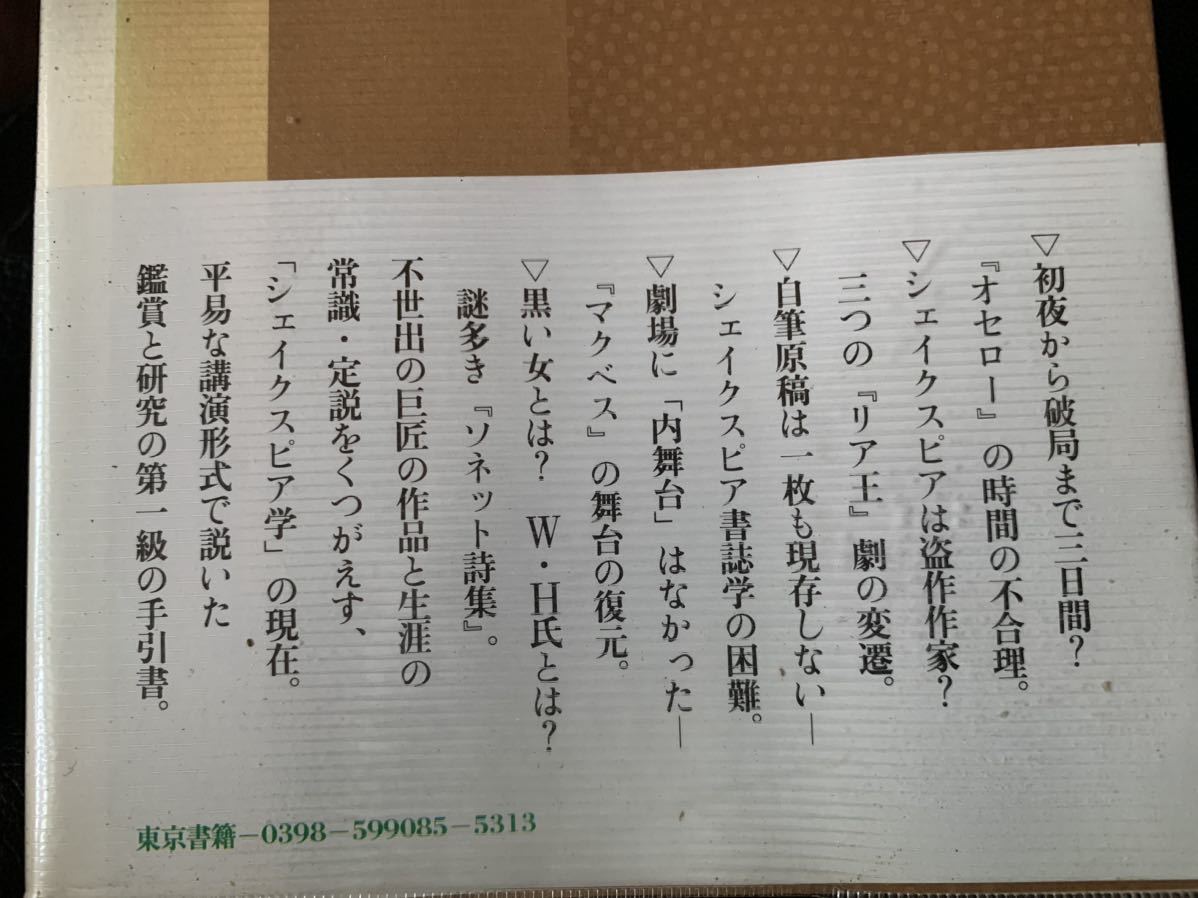 ▽初夜から破局まで三日間？
『オセロー』の時間の不合理。
▽シェイクスピアは盗作作家？
三つの『リア王』劇の変遷。
▽自筆原稿は一枚も現存しない―
シェイクスピア書誌学の困難。
▽劇場に「内舞台」はなかった―
『マクベス』の舞台の復元。
▽黒い女とは？　W・H氏とは？
謎多き『ソネット詩集』。
不世出の巨匠の作品と生涯の
常識・定説をくつがえす、
「シェイクスピア学」の現在。
平易な講演形式で説いた
鑑賞と研究の第一級の手引書。
東京書籍−0398−599085−5313